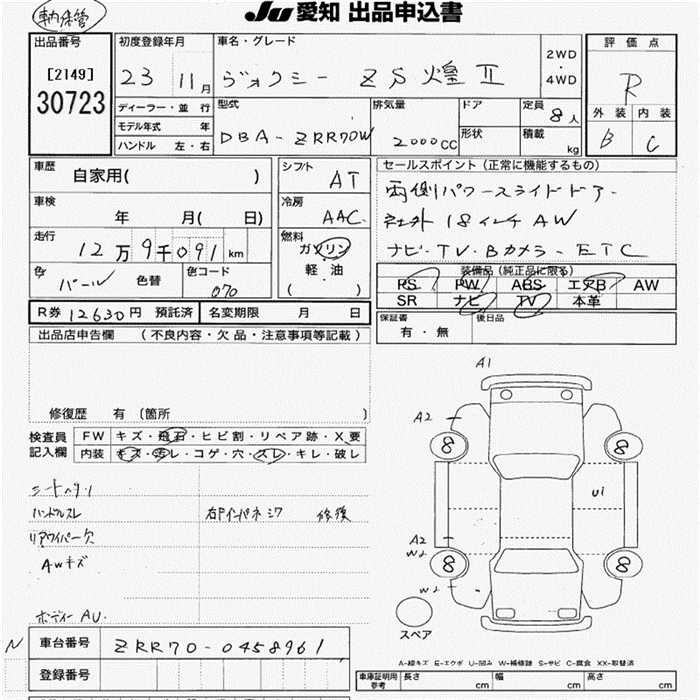 車内保管
Ju 愛知 出品申込書
出品番号
[2149]
30723
初度登録年月
23 11 月
車名・グレード
ヴォクシー ZS 煌 II
2WD
・
4WD
評価点
R
外装 内装
B C
ディーラー・並行
モデル年式 年
ハンドル 左・右
型式
DBA-ZRR70W
排気量
2000 CC
ドア
形状
定員
8 人
積載
kg
車歴
自家用( )
車検
年 月( 日)
走行
12万9千091 km
色
パール
色替
色コード
070
シフト
AT
冷房
AAC
燃料
ガソリン
軽油
( )
セールスポイント (正常に機能するもの)
両側パワースライドドアー
社外18インチAW
ナビ・TV・Bカメラ・ETC
装備品 (純正品に限る)
PS PW ABS エアB AW
SR ナビ TV 本革
保証書
有・無
後日品
R券 12630 円 預託済
名変期限 月 日
出品店申告欄 (不良内容・欠品・注意事項等記載)
修復歴 有 (箇所 )
検査員
記入欄
FW キズ・飛石・ヒビ割・リペア跡・X 要
内装 キズ・汚れ・コゲ・穴・スレ・キレ・破レ
シートヘタリ
ハンドルスレ 右Fインパネ ミワ 修後
リアワイパー欠
AWキズ
ボディー AU.
A1
A2
8 8
U1
A2
W2
8 8
W2
スペア
A-線キズ E-エクボ U-凹み W-補修跡 S-サビ C-腐食 XX-取替済
N
車台番号 ZRR70-0458961
登録番号
車庫証明用
参考
長さ cm 幅 cm 高さ cm